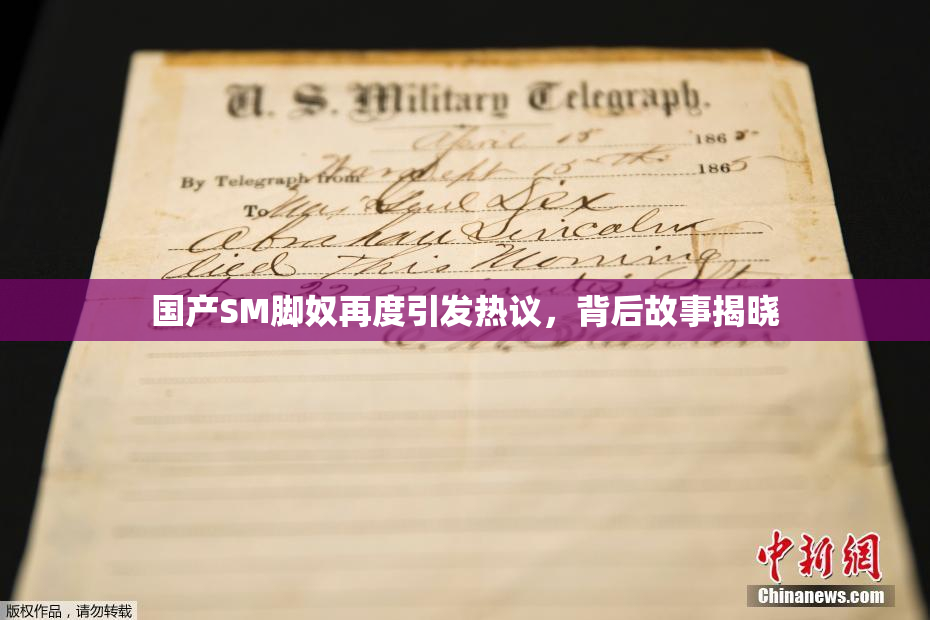 U. S. Military Telegraph.
April 15 1865
By Telegraph from War Dept 15th 1865
To Maj Genl Dix
Abraham Lincoln
died This Morning
at 22 minutes after
国产SM脚奴再度引发热议，背后故事揭晓
E. M. Stanton
中新网
Chinanews.com
版权作品，请勿转载